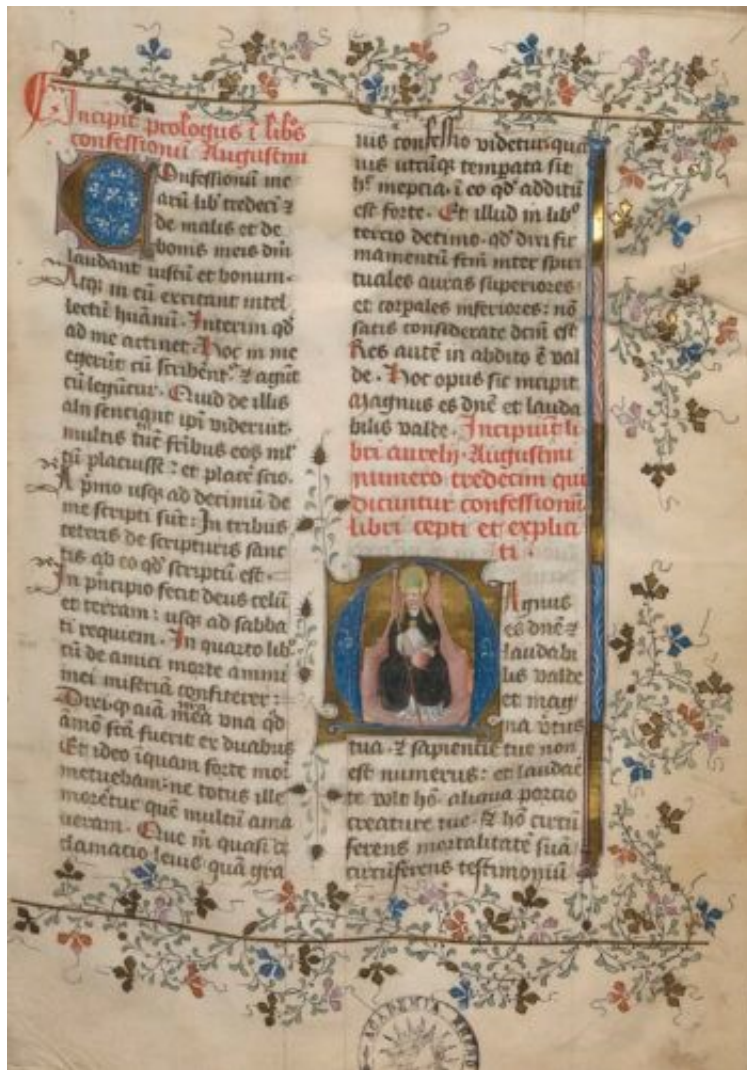 Incipit prologus ī lib̄s
confessionū Augustini
Confessionū me
arū lib' tredeci ⁊
de malis et de
bonis meis dm̄
laudant iustū et bonum·
Atq; in eū excitant intel
lectū huānū· Interim qd̄
ad me attinet· Hoc in me
egerūt cū scriberēt'· ⁊ agūt
cū legūtur· Quid de illis
alii senciant ipī viderint·
multis tn̄ frībus eos ml̄
tū placuisse: et placē scio·
A pͥmo usq; ad decimū de
me scripti sūt: In tribus
ceteris de scripturis sanc
tis ab eo qd̄ scriptū est·
In pͥncipio fecit deus celū
et terram: usq; ad sabba
ti requiem· In quarto lib°
cū de amici morte animi
mei miseriā confiterer:
Dixi q aīa mēa vna qd̄
āmō fcā fuerit ex duabus
Et ideo īquam forte mori
metuebam: ne totus ille
morēetur quē multū ama
ueram· Que m̄ quasi de
clamatio leuis quā gra
uis confessio videtur· qua
uis utcūq; temperata sit
hͨ ineptia· ī eo qd̄ additū
est forte· Et illud in lib°
tercio decimo· qd̄ dixi fir
mamentū fcm̄ inter spiri
tuales auras superiores:
et corpales inferiores: nō
satis considerate dcm̄ est
Res autē in abdito ē val
de· Hoc opus sic incipit
Magnus es dnē et lauda
bilis valde· Incipiūt li
bri aurelij· Augustini
numero tredecim qui
dicuntur confessionū
libri cepti et explici
ti·
Magnus
es dnē ⁊
laudabi
lis valde
et mag
na v̄tus
tua· ⁊ sapientie tue non
est numerus: et laudaē
te vult hō· aliqua portio
creature tue· Et hō circū
ferens mortalitatē suā·
circūferens testimoniū
ACADEMIA